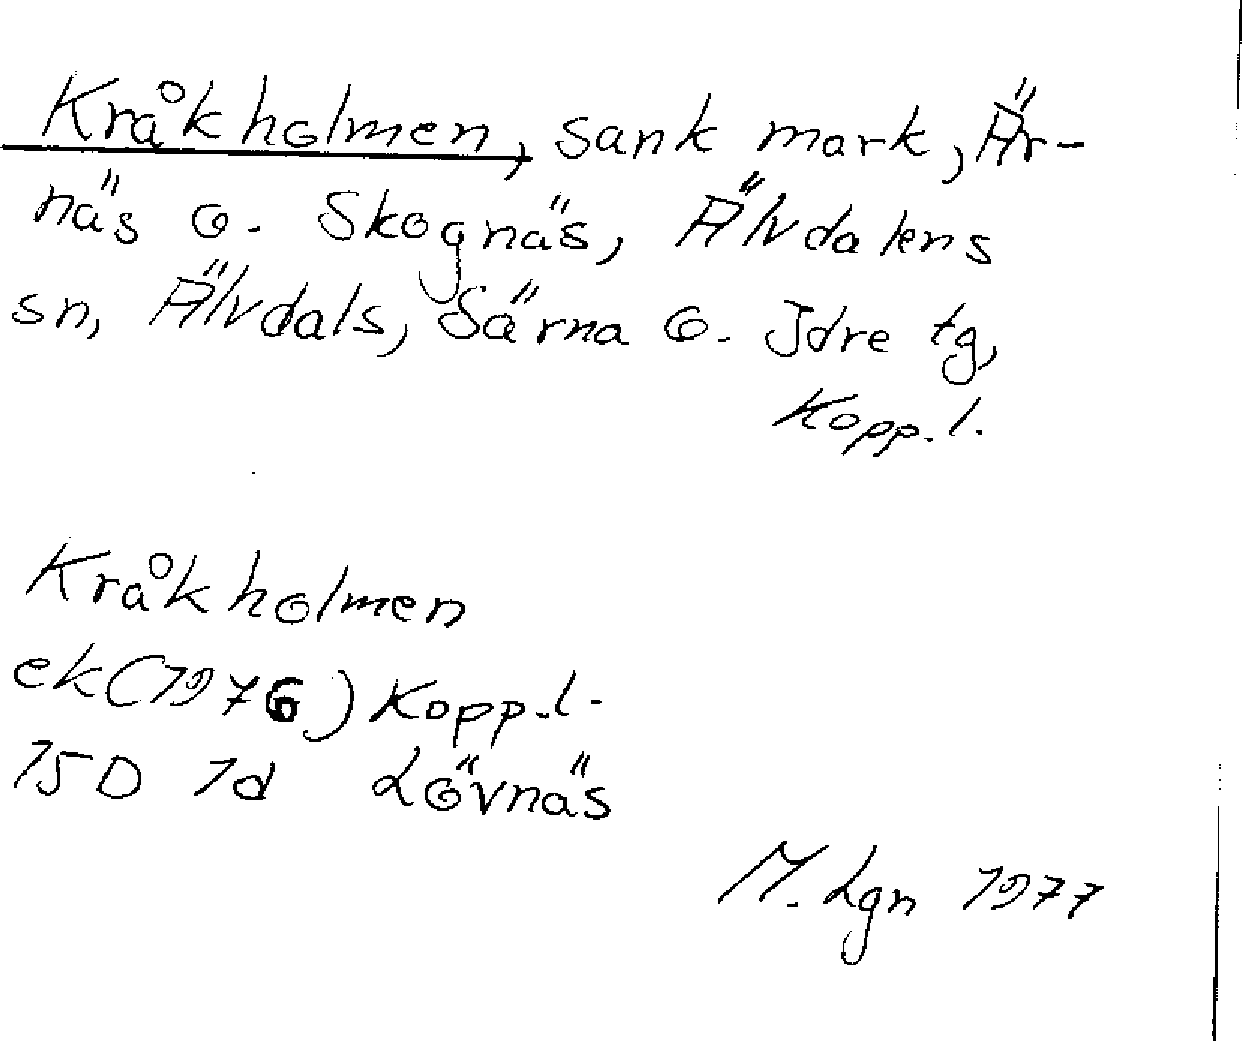 Kråkholmen, sank mark, Är-
näs o. Skognäs, Älvdalens
sn, Älvdals, Särna o. Idre tg,
Kopp.l.
Kråkholmen
ek(1976) Kopp.l.
15D 1d Lövnäs
M. Lgn 1977